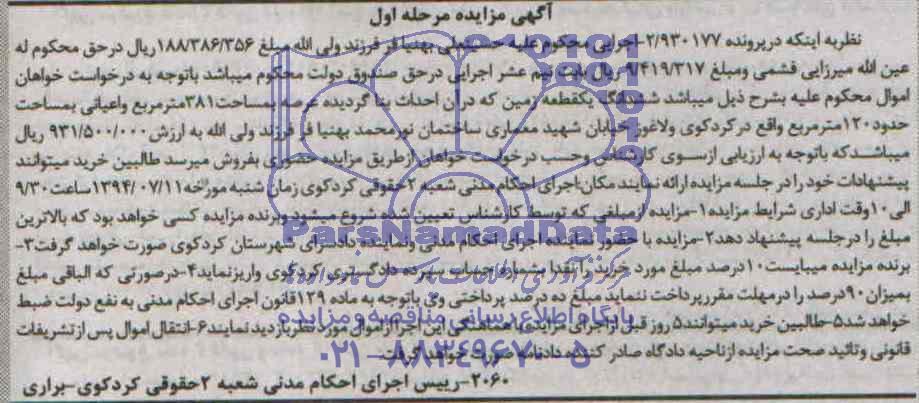 آگهی مزایده مرحله اول
نظر به اینکه در پرونده ۲/۹۳۰۱۷۷-اجرایی محکوم علیه حسینعلی بهنیا فر فرزند ولی الله مبلغ ۱۸۸/۳۸۶/۳۵۶ریال درحق محکوم له
عین الله میرزایی قشمی ومبلغ ۹/۴۱۹/۳۱۷ ریال بابت نیم عشر اجرایی درحق صندوق دولت محکوم میباشد باتوجه به درخواست خواهان
اموال محکوم علیه بشرح ذیل میباشد ششدانگ یکقطعه زمین که درآن احداث بنا گردیده عرصه بمساحت۳۸۱مترمربع واعیانی بمساحت
حدود۱۲۰مترمربع واقع در کردکوی ولاغوز خیابان شهید معماری ساختمان نورمحمد بهنیا فر فرزند ولی الله به ارزش ۹۳۱/۵۰۰/۰۰۰ ریال
میباشدکه باتوجه به ارزیابی ازسوی کارشناس وحسب درخواست خواهان ازطریق مزایده حضوری بفروش میرسد طالبین خرید میتوانند
پیشنهادات خود را در جلسه مزایده ارائه نمایند مکان:اجرای احکام مدنی شعبه ۲حقوقی کردکوی زمان شنبه مورخه۱۳۹۴/۰۷/۱۱ساعت۹/۳۰
الی۱۰وقت اداری شرایط مزایده۱-مزایده ازمبلغی که توسط کارشناس تعیین شده شروع میشود وبرنده مزایده کسی خواهد بود که بالاترین
مبلغ را درجلسه پیشنهاد دهد۲-مزایده با حضور نماینده اجرای احکام مدنی ونماینده دادسرای شهرستان کردکوی صورت خواهد گرفت۳-
برنده مزایده میبایست۱۰درصد مبلغ مورد خرید را نقدا بشماره حساب سپرده دادگستری کردکوی واریزنماید۴-درصورتی که الباقی مبلغ
بمیزان۹۰درصد را درمهلت مقررپرداخت ننماید مبلغ ده درصد پرداختی وی باتوجه به ماده ۱۲۹قانون اجرای احکام مدنی به نفع دولت ضبط
خواهد شد۵-طالبین خرید میتوانند۵روز قبل ازاجرای مزایده با هماهنگی این اجرا ازاموال مورد نظربازدید نمایند۶-انتقال اموال پس ازتشریفات
قانونی وتائید صحت مزایده ازناحیه دادگاه صادر کننده دادنامه صورت خواهد گرفت.
۲۰۶۰-رییس اجرای احکام مدنی شعبه ۲حقوقی کردکوی-براری
ParsNamadData
پایگاه اطلاع رسانی مناقصه و مزایده
۰۲۱-۸۸۳۴۹۶۷۰-۵